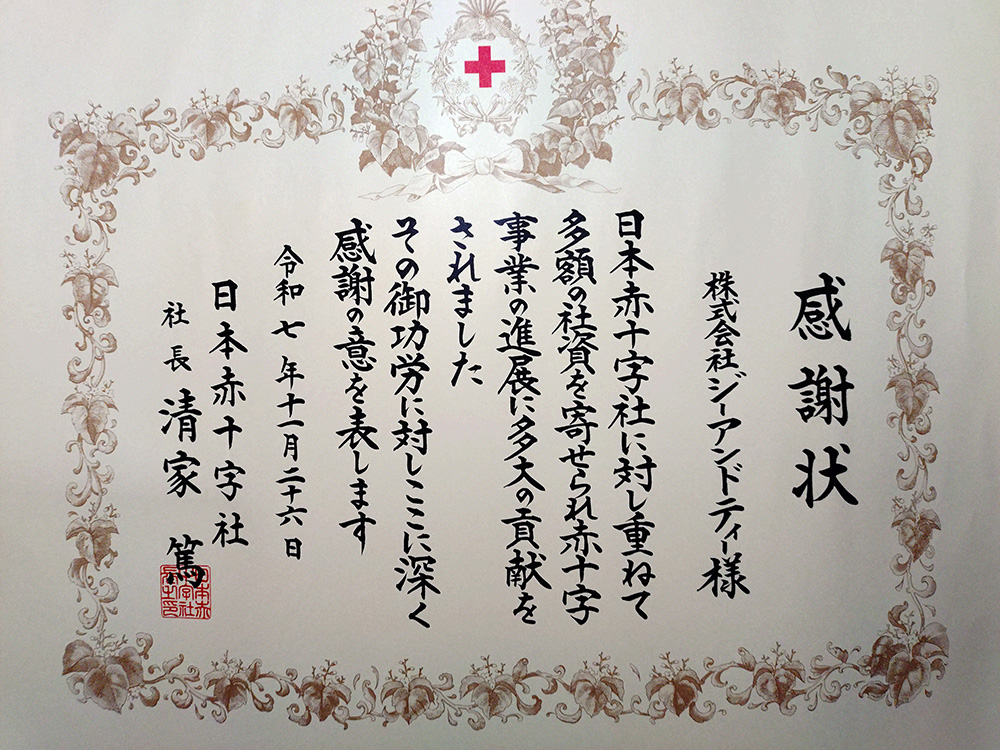 感謝状
株式会社ジーアンドティー様
日本赤十字社に対し重ねて
多額の社資を寄せられ赤十字
事業の進展に多大の貢献を
されました
その御功労に対しここに深く
感謝の意を表します
令和七年十一月二十六日
日本赤十字社
社長 清家 篤
日本赤
十字社
長之印